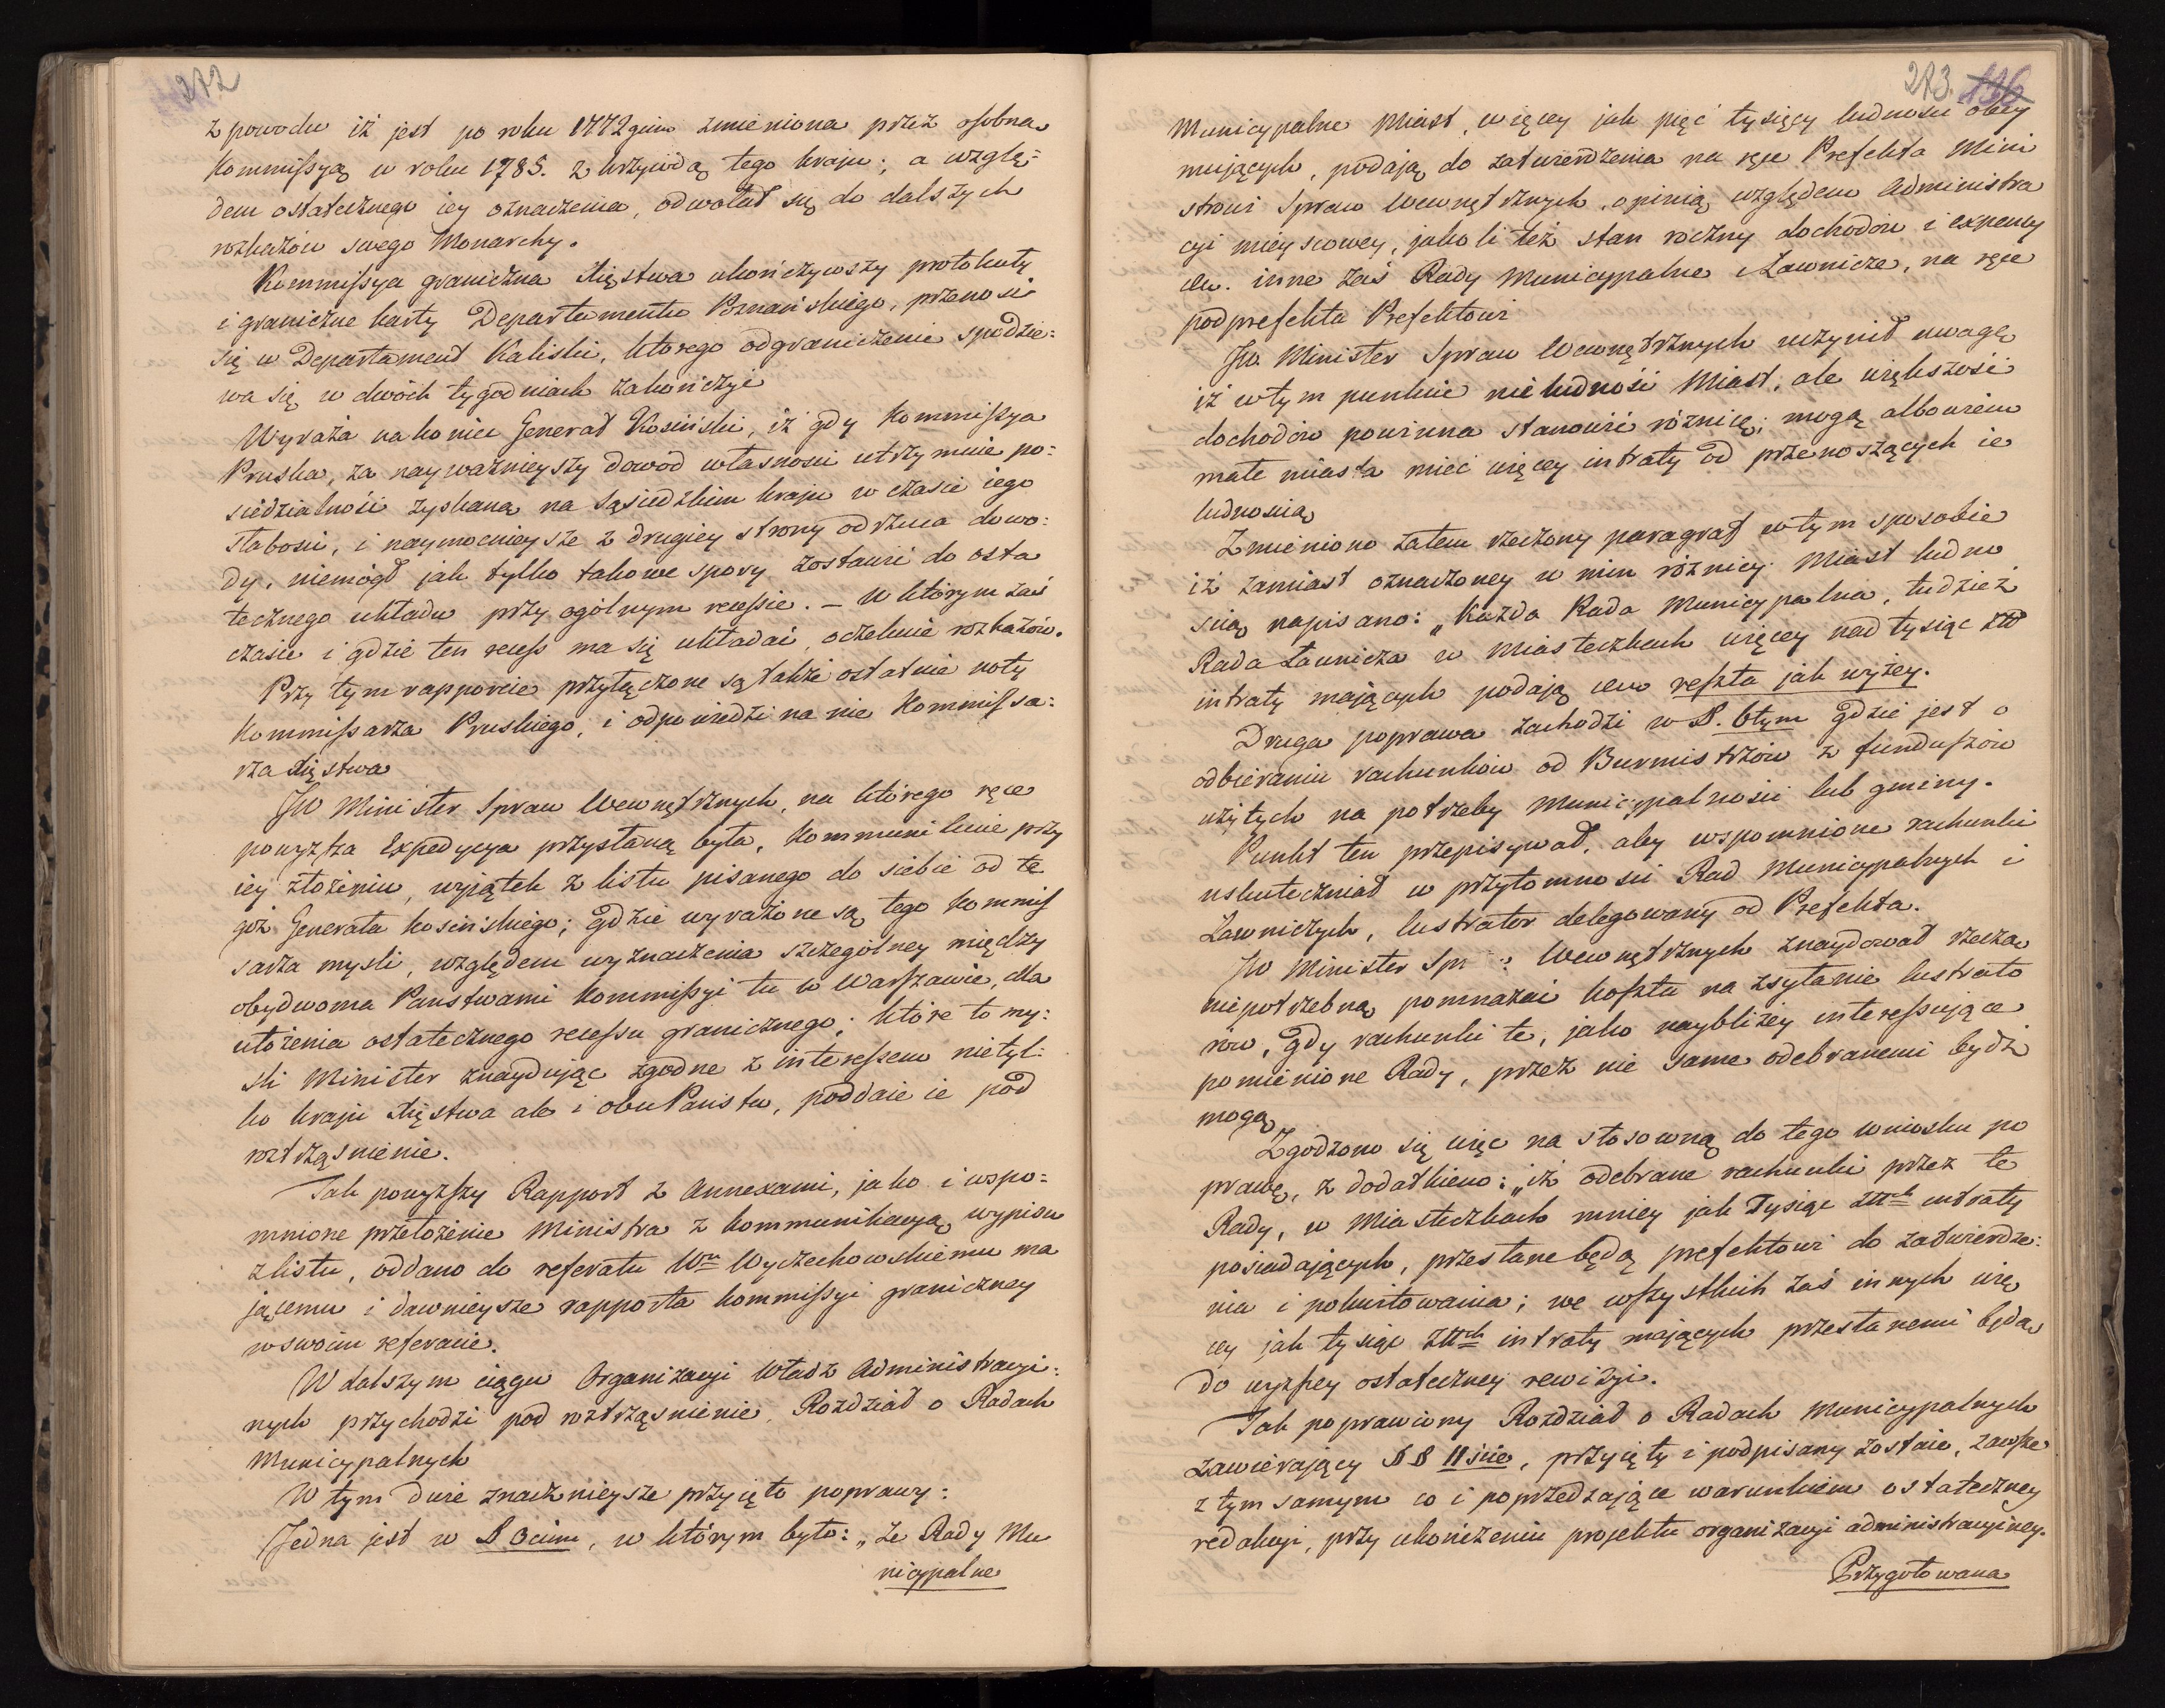 272
z powodu iż jest po roku 1772gim zmieniona przez osobną
Kommissyą w roku 1785. z krzywdą tego kraju; a wzglę=
dem ostatecznego iey oznaczenia, odwołał się do dalszych
rozkazów swego Monarchy.
Kommissya graniczna Xięstwa ukończywszy protokuły
i graniczne karty Departamentu Poznańskiego, przenosi
się w Departament Kaliski, którego odgraniczenie spodzie=
wa się w dwóch tygodniach zakończyć
Wyraża na koniec Generał Kosiński, iż gdy Kommissya
Pruska, za nayważnieyszy dowód własności utrzymuie po=
siedzialność zyskaną na sąsiedzkim kraju w czasie iego
słabości, i naymocnieysze z drugiey strony odrzuca dowo=
dy, niemógł jak tylko takowe spory zostawić do osta
tecznego układu przy ogólnym recessie. – w którym zaś
czasie i gdzie ten recess ma się układać, oczekuie rozkazów.
Przy tym rapporcie przyłączone są także ostatnie noty
Kommissarza Pruskiego, i odpowiedzi na nie Kommissa=
rza Xięstwa
JW Minister Spraw Wewnętrznych, na którego ręce
powyższa Expedycya przysłaną była, kommunikuie przy
iey złożeniu, wyjątek z listu pisanego do siebie od te
goż Generała Kosińskiego; gdzie wyrażone są tego Kommis
sarza mysli, względem wyznaczenia szczególney między
obydwoma Panstwami Kommissyi tu w Warszawie, dla
ułożenia ostatecznego recessu granicznego; które to my=
sli Minister znaydując zgodne z interessem nietyl=
ko kraju Xięstwa ale i obu Państw, poddaie ie pod
roztrząsnienie.
Tak powyższy Rapport z Annexami, jako i wspo=
mnione przełożenie Ministra z kommunikacyą wypisu
z listu, oddano do referatu Wu Wyczechowskiemu ma
jącemu i dawnieysze rapporta kommissyi graniczney
w swoim referacie.
W dalszym ciągu Organizacyi Władz Administracyi=
nych przychodzi pod roztrząsnienie, Rozdział o Radach
Municypalnych
W tym dwie znacznieysze przyięto poprawy:
Jedna jest w § 3cim, w którym było: „że Rady Mu
nicypalne
273. 136
Municypalne Miast, więcey jak pięć tysięcy ludności obey
mujących, podają do zatwierdzenia na ręce Prefekta Mini
strowi Spraw Wewnętrznych, opinią względem Administra
cyi mieyscowey, jakoli też stan roczny dochodów i expensy
etc. inne zaś Rady Municypalne i Ławnicze, na ręce
podprefekta Prefektowi
JW. Minister Spraw Wewnętrznych uczynił uwagę
iż w tym punkcie nie ludność Miast, ale większość
dochodów powinna stanowić różnicę; mogą albowiem
małe miasta mieć więcey intraty od przenoszących ie
ludnością
Zmieniono zatem rzeczony paragraf w tym sposobie
iż zamiast oznaczoney w nim różnicy Miast ludno
scią napisano: „Każda Rada Municypalna, tudzież
Rada Ławnicza w Miasteczkach więcey nad tysiąc złł
intraty mających podają etc reszta jak wyżey.
Druga poprawa zachodzi w §. 6tym gdzie jest o
odbieraniu rachunków od Burmistrzów z funduszów
użytych na potrzeby Municypalności lub gminy.
Punkt ten przepisywał, aby wspomnione rachunki
uskuteczniał w przytomności Rad Municypalnych i
Ławniczych, lustrator delegowany od Prefekta.
JW Minister Spr: Wewnętrznych znaydował rzeczą
niepotrzebną pomnażać kosztu na zsyłanie lustrato
rów, gdy rachunki te, jako naybliżey interessujące
pomienione Rady, przez nie same odebranemi bydź
mogą
Zgodzono się więc na stosowną do tego wniosku po
prawę, z dodatkiem: „iż odebrane rachunki przez te
Rady, w Miasteczkach mniey jak Tysiąc złłch intraty
posiadających, przesłane będą prefektowi do zatwierdze=
nia i pokwitowania; we wszystkich zaś innych wię
cey jak tysiąc złłch intraty mających przesłanemi będą
do wyższey ostateczney rewizyi.
Tak poprawiony Rozdział o Radach Municypalnych
zawierający §§ 11ście, przyięty i podpisany zostaie, zawsze
z tym samym co i poprzedzające warunkiem ostateczney
redakcyi, przy ukończeniu projektu organizacyi administracyiney.
Przygotowana